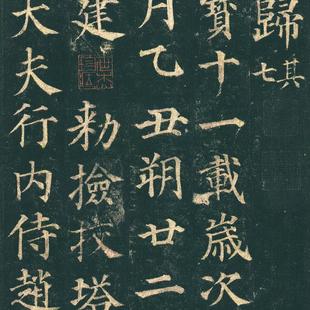 歸其七
寶十一載歲次
月乙丑朔廿二
建勅撿挍塔
大夫行内侍趙